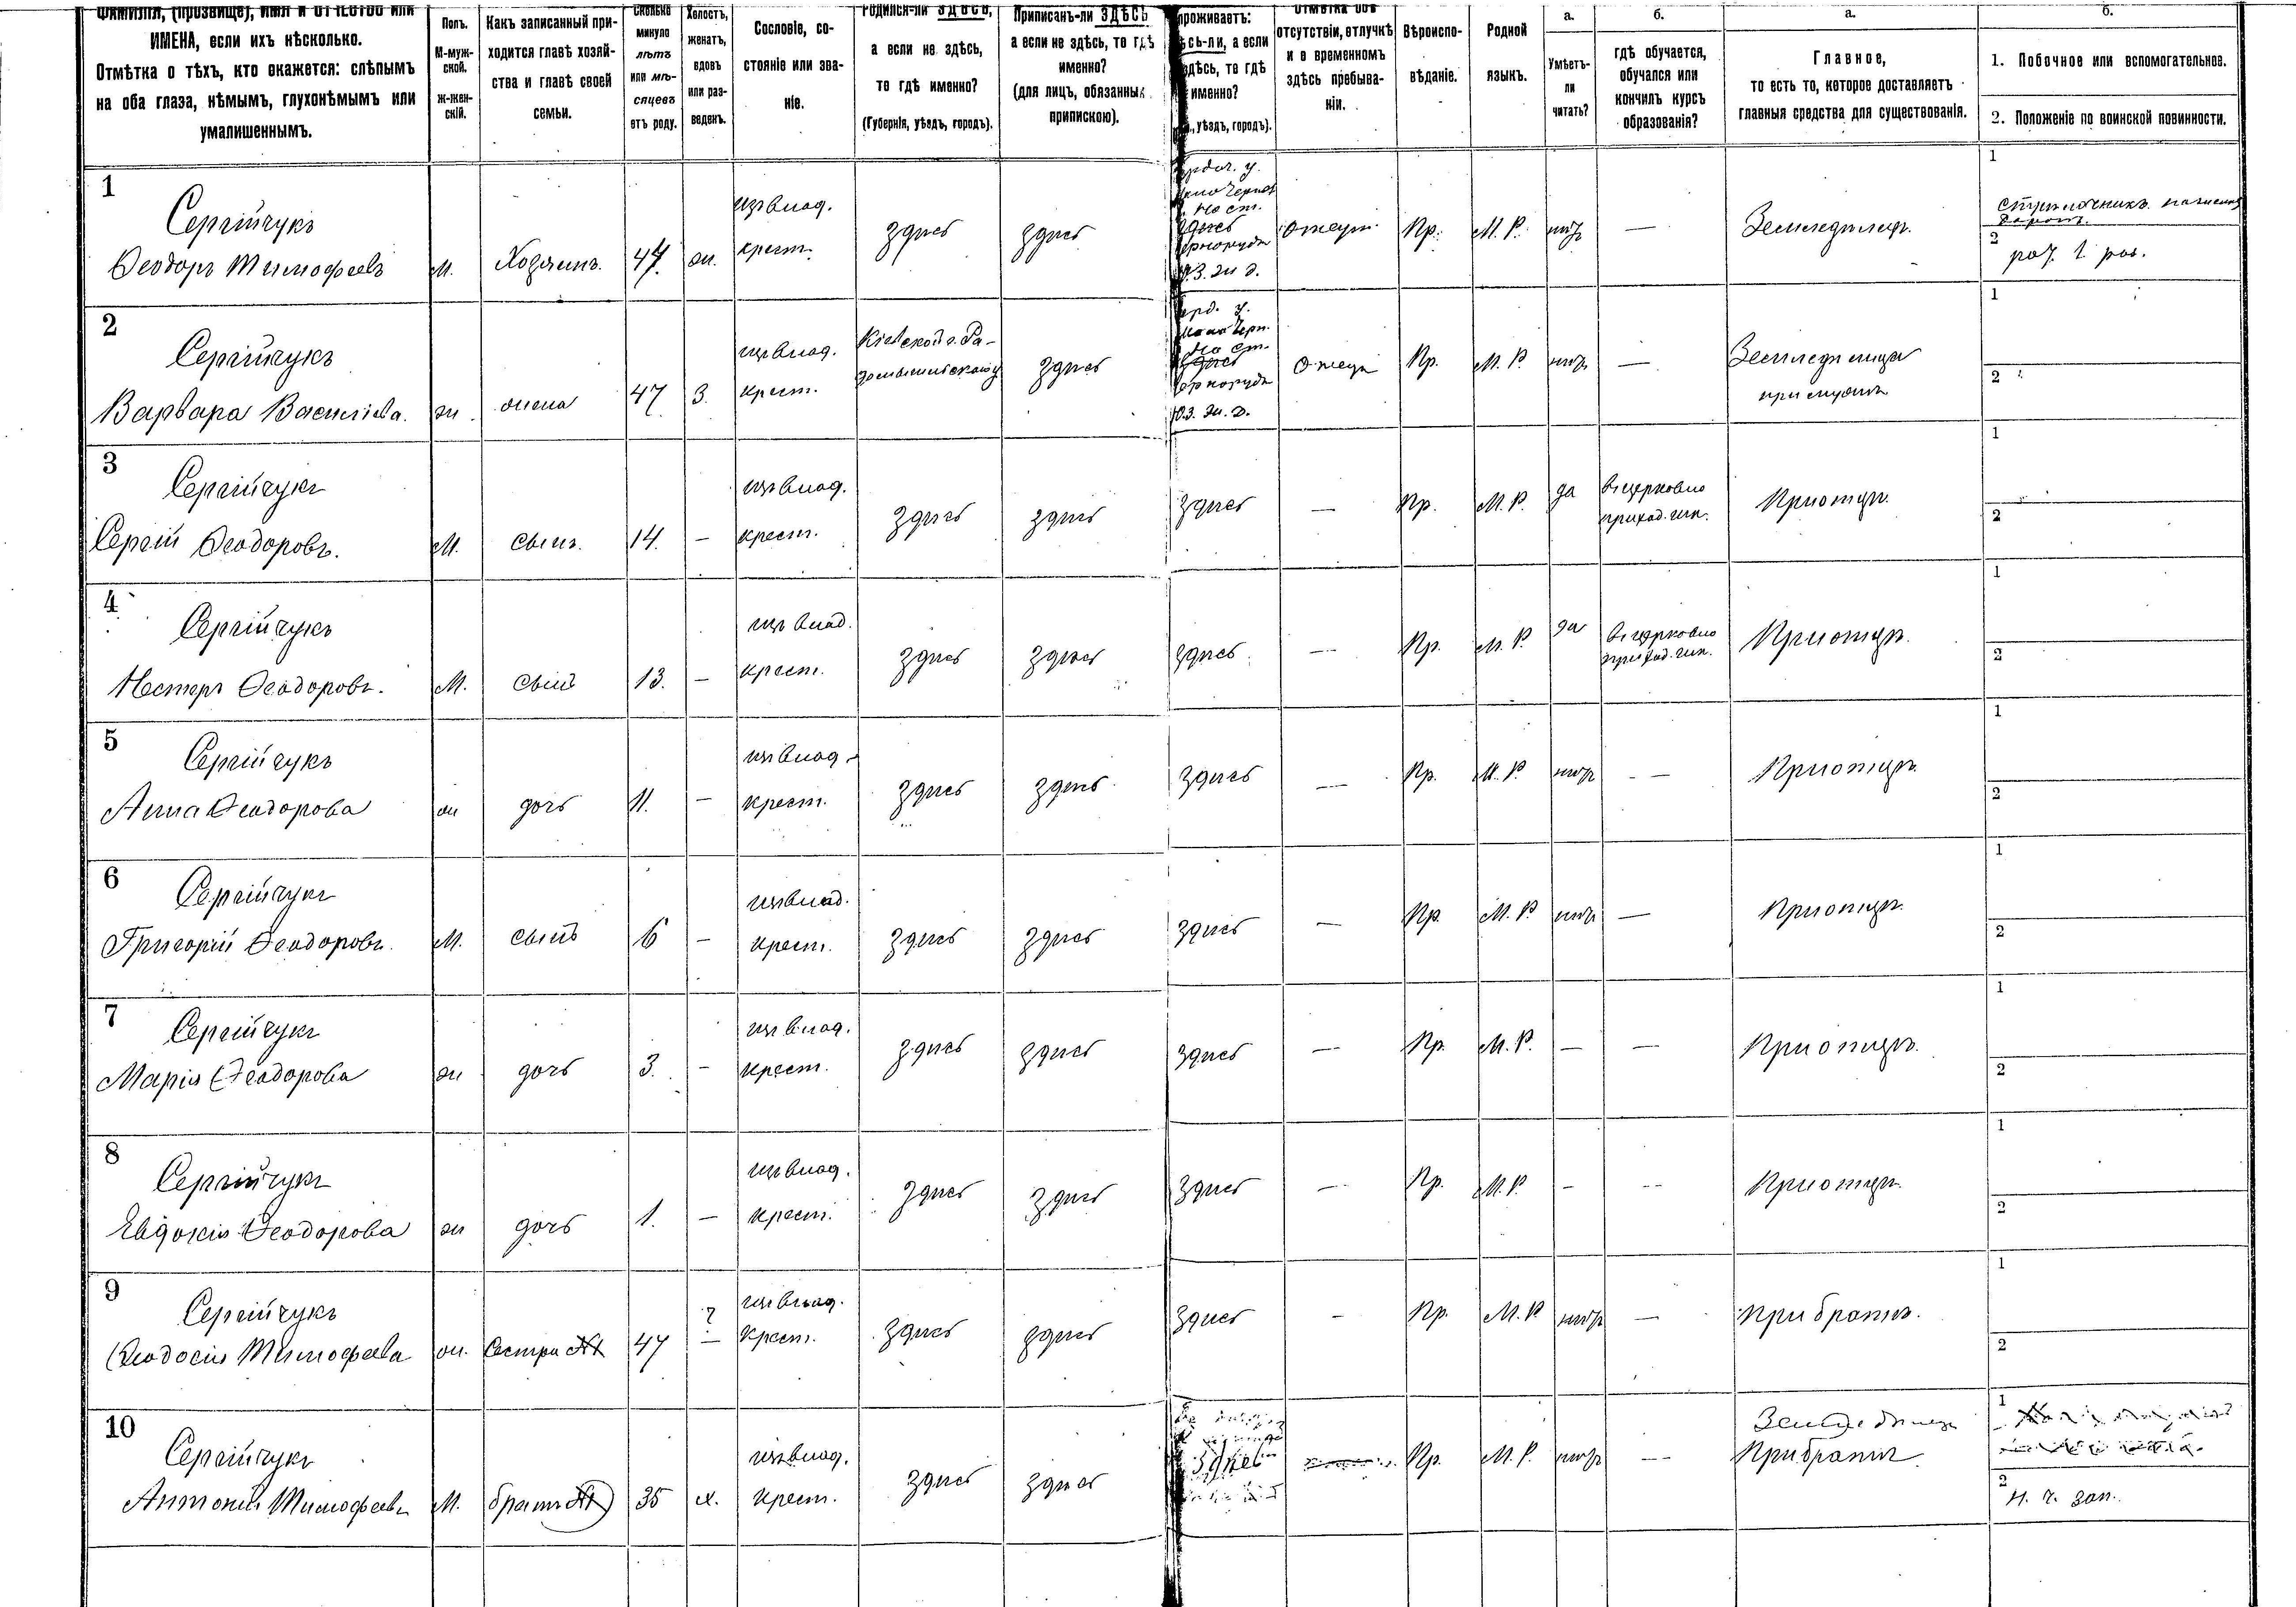 Фамилія, (прозвище), имя и отчество или
ИМЕНА, если ихъ нѣсколько.
Отмѣтка о тѣхъ, кто окажется: слѣпымъ
на оба глаза, нѣмымъ, глухонѣмымъ или
умалишеннымъ.
Полъ.
М-муж-
ской.
ж-жен-
скій.
Какъ записанный при-
ходится главѣ хозяй-
ства и главѣ своей
семьи.
Сколько
минуло
лѣтъ
или мѣ-
сяцевъ
отъ роду.
Холостъ,
женатъ,
вдовъ
или раз-
веденъ.
Сословіе, со-
стояніе или зва-
ніе.
Родился-ли ЗДѢСЬ,
а если не здѣсь,
то гдѣ именно?
(Губернія, уѣздъ, городъ).
Приписанъ-ли ЗДѢСЬ
а если не здѣсь, то гдѣ
именно?
(для лицъ, обязанных
припискою).
проживаетъ:
сь-ли, а если
здѣсь, то гдѣ
именно?
уѣздъ, городъ).
Отмѣтка объ
отсутствіи, отлучкѣ
и о временномъ
здѣсь пребыва-
ніи.
Вѣроиспо-
вѣданіе.
Родной
языкъ.
а.
Умѣетъ-
ли
читать?
б.
гдѣ обучается,
обучался или
кончилъ курсъ
образованія?
а.
Главное,
то есть то, которое доставляетъ
главныя средства для существованія.
б.
1. Побочное или вспомогательное.
2. Положеніе по воинской повинности.
1
Сергійчукъ
Ѳеодоръ Тимофеевъ
М.
Хозяинъ.
47
ж.
изъ влад.
крест.
здѣсь
здѣсь
На ст.
здѣсь
Ю.З. ж д.
Пр.
М. Р.
нѣтъ
—
Земледѣлец.
1
2
2
Сергійчукъ
Варвара Василіева.
ж.
жена
47
З.
изъ влад.
крест.
Кіевской г. Ра-
домысльскаго у
здѣсь
На ст.
Ю.З. ж. д.
Пр.
М. Р.
нѣтъ
—
при мужѣ
1
2
3
Сергійчукъ
Сергій Ѳеодоровъ.
М.
сынъ.
14.
—
изъ влад.
крест.
здѣсь
здѣсь
здѣсь
—
Пр.
М. Р.
да
въ церковно
приход. шк.
При отцѣ.
1
2
4
Сергійчукъ
Нестеръ Ѳеодоровъ.
М.
сынъ
13.
—
изъ влад.
крест.
здѣсь
здѣсь
здѣсь
—
Пр.
М. Р.
да
въ церковно
приход. шк.
При отцѣ.
1
2
5
Сергійчукъ
Анна Ѳеодорова
ж
дочь
11.
—
изъ влад.
крест.
здѣсь
здѣсь
здѣсь
—
Пр.
М. Р.
нѣтъ
—
При отцѣ.
1
2
6
Сергійчукъ
Григорій Ѳеодоровъ.
М.
сынъ
6
—
изъ влад.
крест.
здѣсь
здѣсь
здѣсь
—
Пр.
М. Р.
нѣтъ
—
При отцѣ.
1
2
7
Сергійчукъ
Марія Ѳеодорова
ж
дочь
3.
—
изъ влад.
крест.
здѣсь
здѣсь
здѣсь
—
Пр.
М. Р.
—
—
При отцѣ.
1
2
8
Сергійчукъ
Евдокія Ѳеодорова
ж
дочь
1.
—
изъ влад.
крест.
здѣсь
здѣсь
здѣсь
—
Пр.
М. Р.
—
—
При отцѣ.
1
2
9
Сергійчукъ
Ѳеодосія Тимофеева
ж.
Сестра №1
47
?
—
изъ влад.
крест.
здѣсь
здѣсь
здѣсь
—
Пр.
М. Р.
нѣтъ
—
при братѣ.
1
2
10
Сергійчукъ
Антоній Тимофеевъ
М.
братъ №1
35
х.
изъ влад.
крест.
здѣсь
здѣсь
здѣсь
Пр.
М. Р.
нѣтъ
—
При братѣ
1
2
Н. ч. зап.